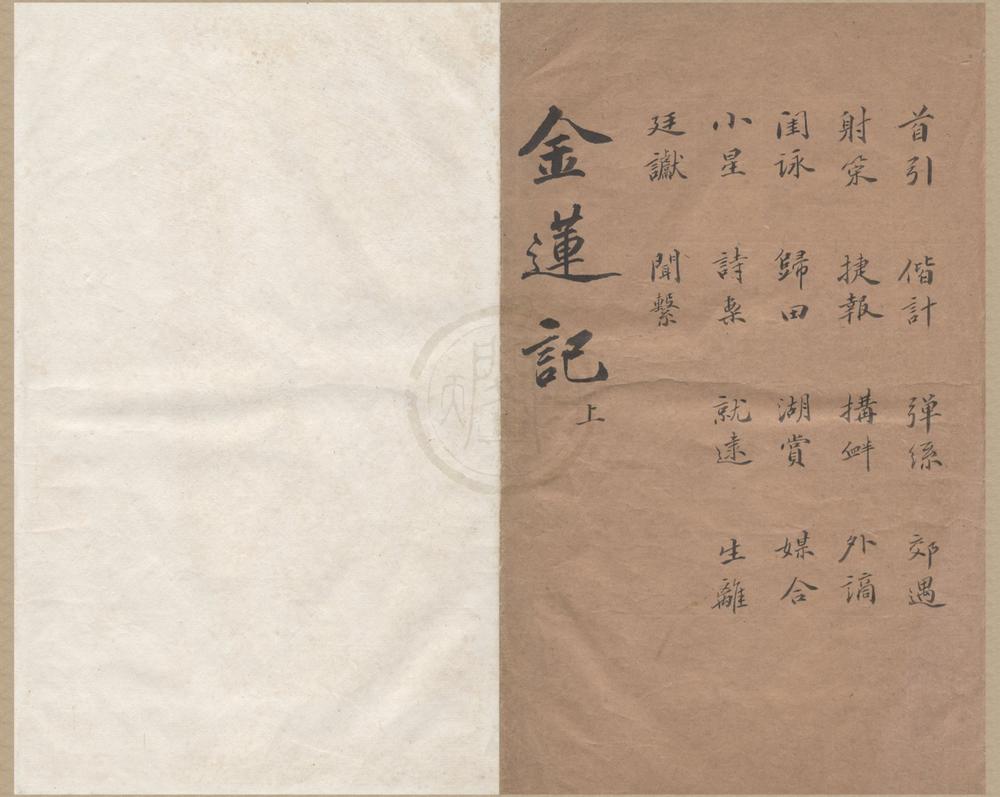 首引　偕計　弹絲　郊遇
射策　捷報　搆衅　外謫
閨詠　歸田　湖賞　媒合
小星　詩案　就逮　生離
廷讞　聞繫
金蓮記 上